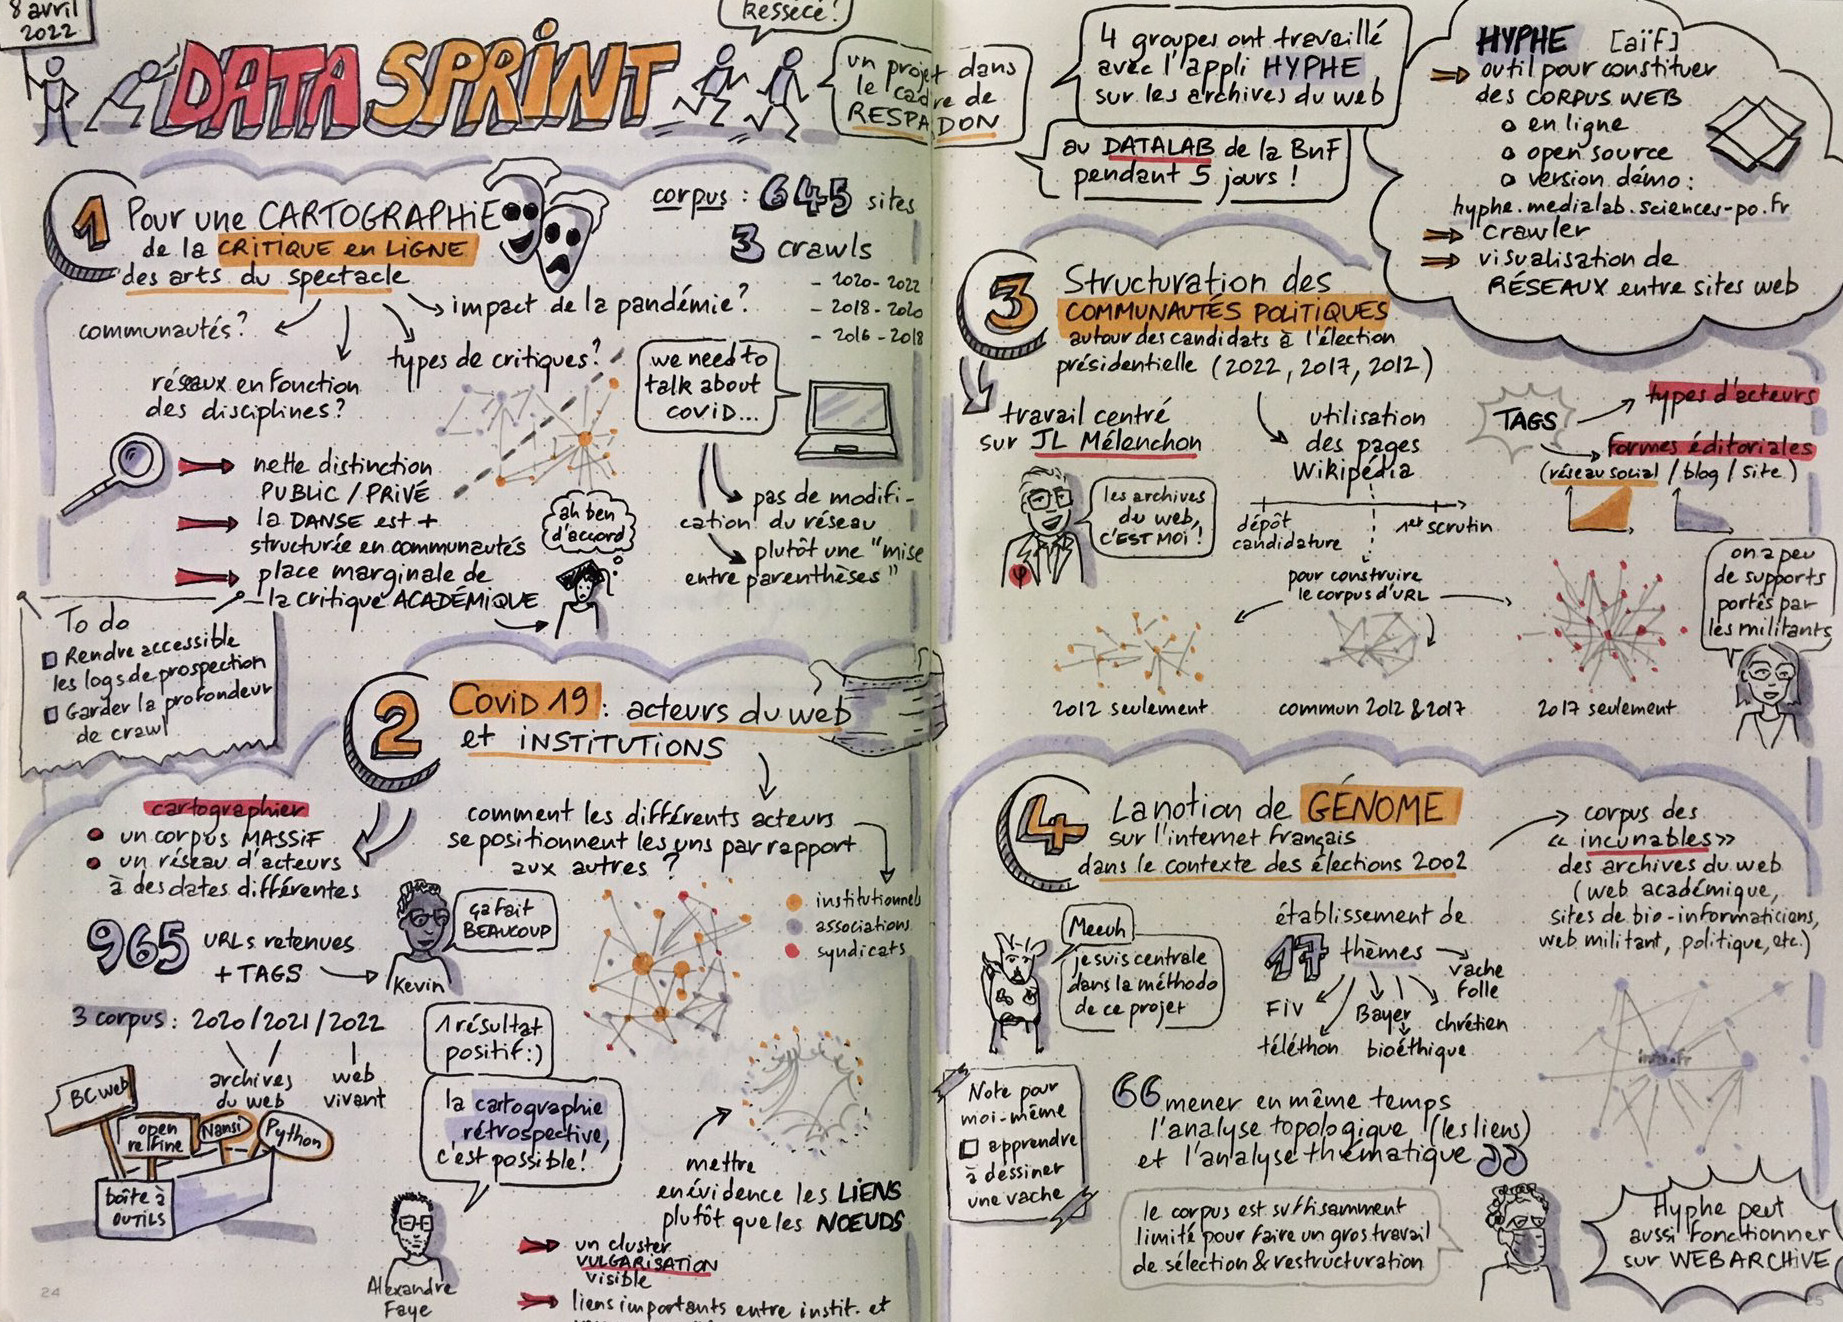 8 avril
2022
DATA SPRINT
Ressecé!
un projet dans
le cadre de
RESPADON
4 groupes ont travaillé
avec l'appli HYPHE
sur les archives du web
au DATALAB de la BnF
pendant 5 jours !
HYPHE [aïf]
outil pour constituer
des CORPUS WEB
en ligne
open source
version démo :
hyphe.medialab.sciences-po.fr
crawler
visualisation de
RÉSEAUX entre sites web
1
Pour une CARTOGRAPHIE
de la CRITIQUE en LIGNE
des arts du spectacle
corpus : 645 sites
3 crawls
- 2020-2022
- 2018-2020
- 2016-2018
communautés ?
impact de la pandémie ?
types de critiques ?
réseaux en fonction
des disciplines ?
we need to
talk about
covid...
nette distinction
PUBLIC / PRIVÉ
la DANSE est +
structurée en communautés
place marginale de
la critique ACADÉMIQUE
ah ben
d'accord
pas de modifi-
cation du réseau
plutôt une "mise
entre parenthèses"
To do
Rendre accessible
les logs de prospection
Garder la profondeur
de crawl
2
Covid 19 : acteurs du web
et INSTITUTIONS
comment les différents acteurs
se positionnent les uns par rapport
aux autres ?
cartographier
un corpus MASSIF
un réseau d'acteurs
à des dates différentes
965 URLs retenues
+ TAGS
Kevin
ça fait
BEAUCOUP
institutionnels
associations
syndicats
3 corpus : 2020/2021/2022
archives
du web
web
vivant
BCweb
open
refine
Nansi
Python
boîte à
OUTILS
1 résultat
positif :)
la cartographie
rétrospective,
c'est possible !
Alexandre
Faye
mettre
en évidence les LIENS
plutôt que les NOEUDS
un cluster
VULGARISATION
visible
liens importants entre instit. et
3
Structuration des
COMMUNAUTÉS POLITIQUES
autour des candidats à l'élection
présidentielle (2022, 2017, 2012)
travail centré
sur JL Mélenchon
les archives
du web,
C'EST MOI !
φ
utilisation
des pages
Wikipédia
dépôt
candidature
1er scrutin
pour construire
le corpus d'URL
TAGS
types d'acteurs
formes éditoriales
(réseau social / blog / site)
on a peu
de supports
portés par
les militants
2012 seulement
commun 2012 & 2017
2017 seulement
4
La notion de GÉNOME
sur l'internet français
dans le contexte des élections 2002
corpus des
« incunables »
des archives du web
(web académique,
sites de bio-informaticiens,
web militant, politique, etc.)
Meeuh
je suis centrale
dans la méthodo
de ce projet
établissement de
17 thèmes
FIV
téléthon
Bayer
bioéthique
chrétien
vache
folle
inra.fr
Note pour
moi-même
apprendre
à dessiner
une vache
66 mener en même temps
l'analyse topologique (les liens)
et l'analyse thématique
le corpus est suffisamment
limité pour faire un gros travail
de sélection & restructuration
Hyphe peut
aussi fonctionner
sur WEBARCHIVE
24
25